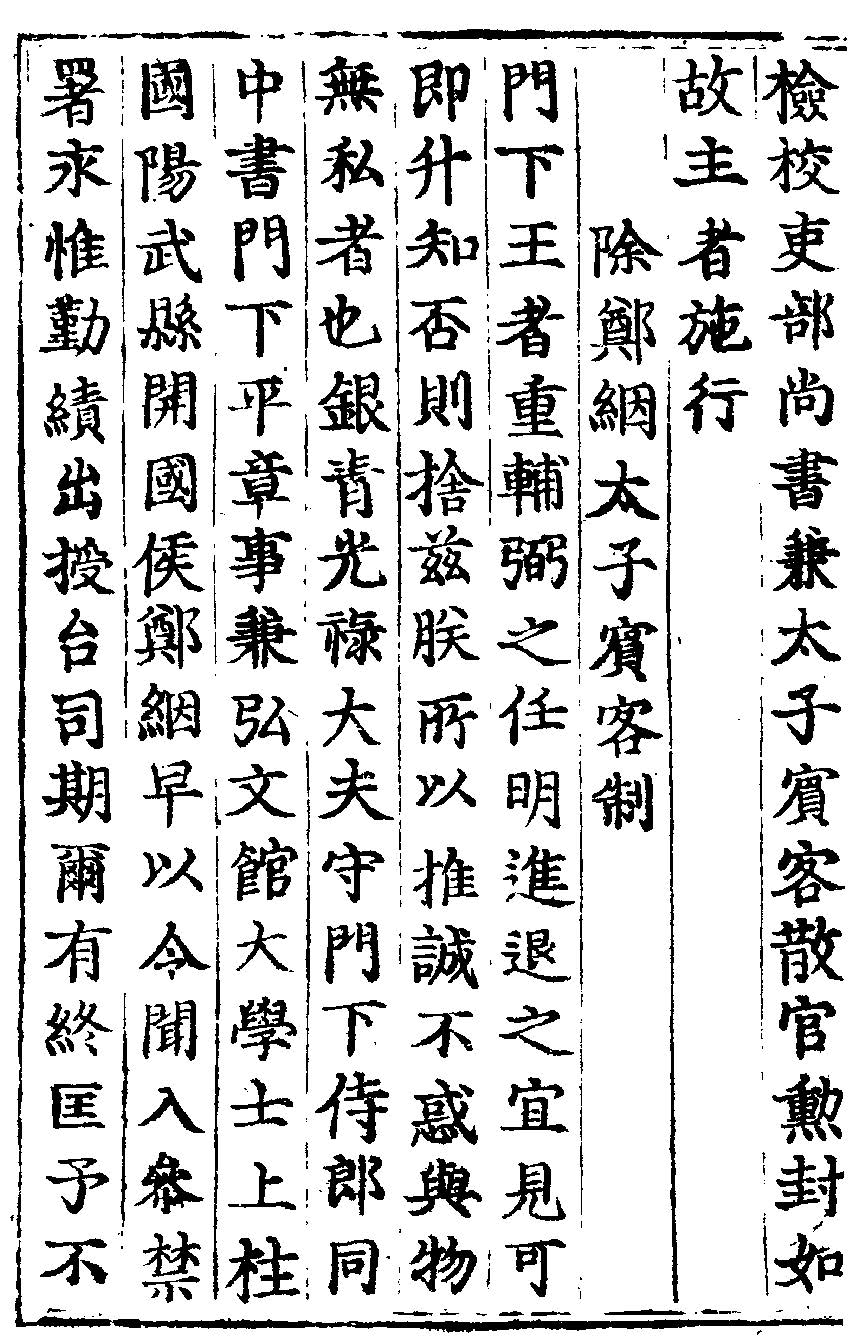 檢校吏部尚書兼太子賓客散官勲封如
故主者施行
除鄭絪太子賓客制
門下王者重輔弼之任明進退之宜見可
即升知否則捨兹朕所以推誠不惑與物
無私者也銀青光祿大夫守門下侍郎同
中書門下平章事兼弘文館大學士上柱
國陽武縣開國侯鄭絪早以令聞入叅禁
署永惟勤績出授台司期爾有終匡予不